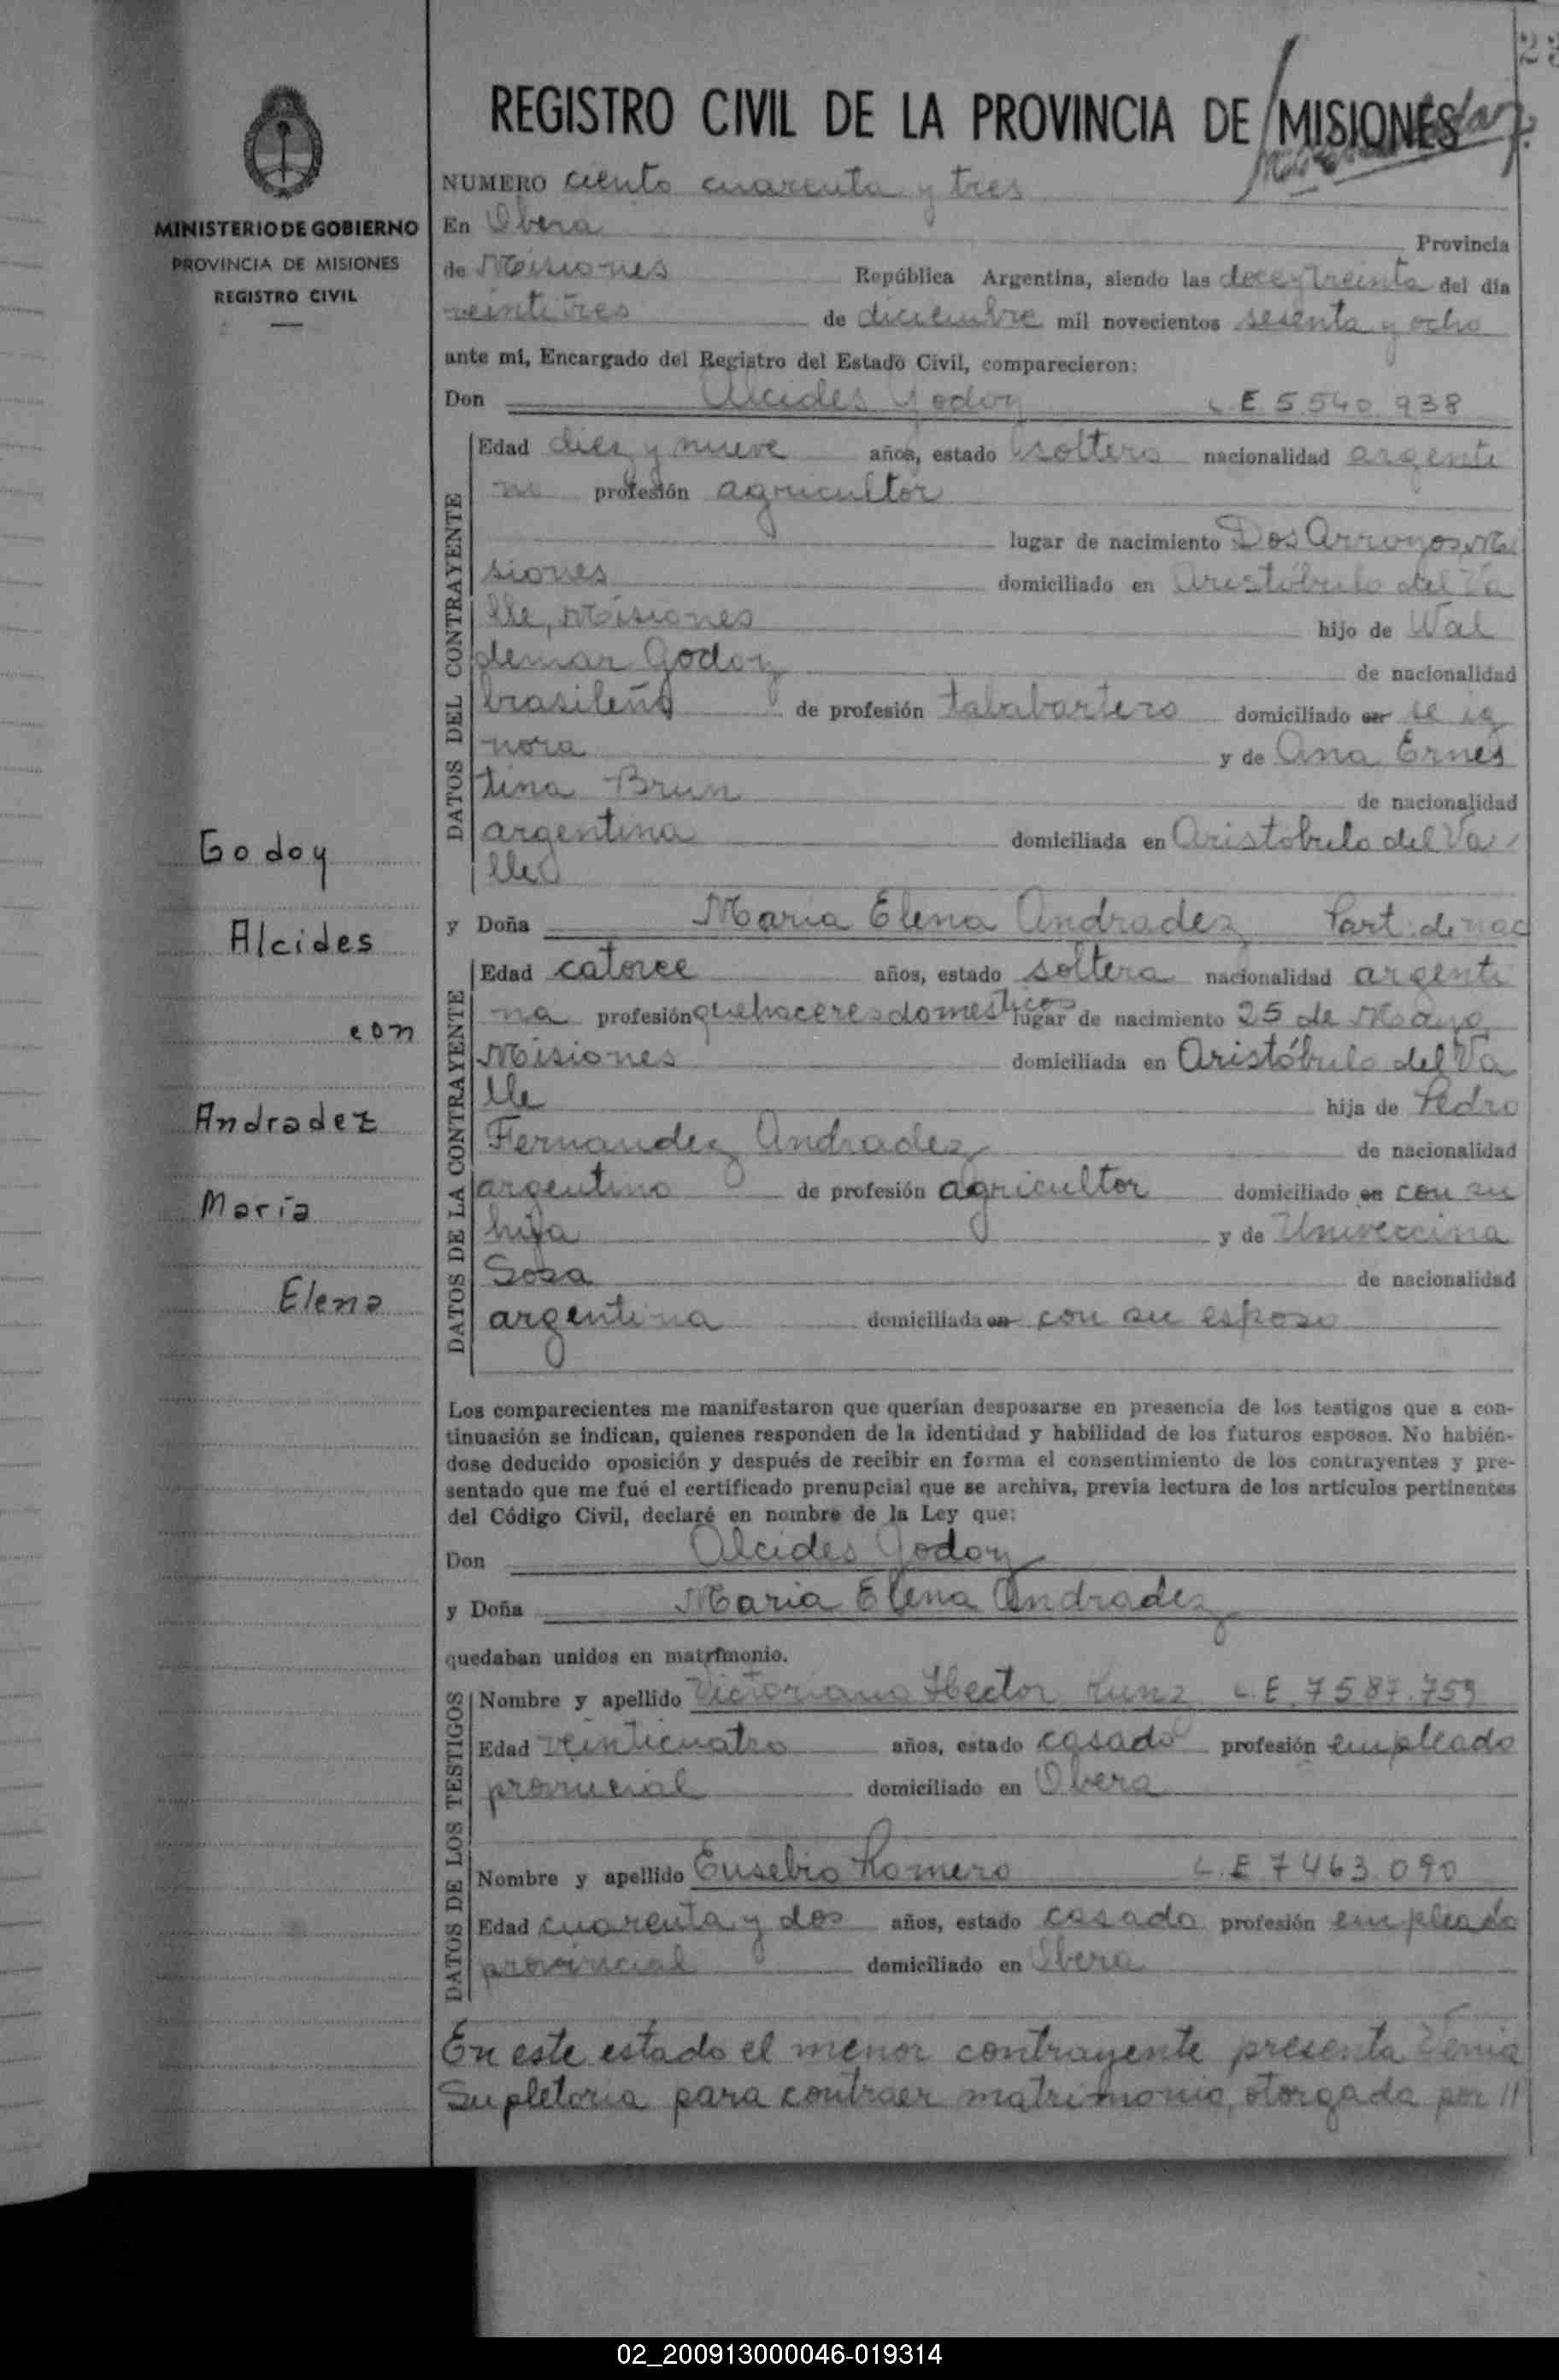 23
REGISTRO CIVIL DE LA PROVINCIA DE MISIONES
MINISTERIO DE GOBIERNO
PROVINCIA DE MISIONES
REGISTRO CIVIL
NUMERO ciento cuarenta y tres
En Obera Provincia
de Misiones República Argentina, siendo las doce y treinta del día
veintitres de diciembre mil novecientos sesenta y ocho
ante mí, Encargado del Registro del Estado Civil, comparecieron:
Don Alcides Godoy L E 5.540.938
DATOS DEL CONTRAYENTE
Edad diez y nueve años, estado soltero nacionalidad argenti
no profesión agricultor
lugar de nacimiento Dos Arroyos, Mi
siones domiciliado en Aristóbulo del Va
lle, Misiones hijo de Wal
demar Godoy de nacionalidad
brasileño de profesión talabartero domiciliado en se ig
nora y de Ana Ernes
tina Brun de nacionalidad
argentina domiciliada en Aristobulo del Va
lle
Godoy
Alcides
con
Andradez
María
Elena
y Doña Maria Elena Andradez Part. de nac
DATOS DE LA CONTRAYENTE
Edad catorce años, estado soltera nacionalidad argenti
na profesión quehaceres domesticos lugar de nacimiento 25 de Mayo
Misiones domiciliada en Aristóbulo del Va
lle hija de Pedro
Fernandez Andradez de nacionalidad
argentino de profesión agricultor domiciliado en con su
hija y de
Sosa de nacionalidad
argentina domiciliada en con su esposo
Los comparecientes me manifestaron que querían desposarse en presencia de los testigos que a con-
tinuación se indican, quienes responden de la identidad y habilidad de los futuros esposos. No habién-
dose deducido oposición y después de recibir en forma el consentimiento de los contrayentes y pre-
sentado que me fué el certificado prenupcial que se archiva, previa lectura de los artículos pertinentes
del Código Civil, declaré en nombre de la Ley que:
Don Alcides Godoy
y Doña Maria Elena Andradez
quedaban unidos en matrimonio.
DATOS DE LOS TESTIGOS
Nombre y apellido Victoriano Hector L.E. 7587.759
Edad veinticuatro años, estado casado profesión empleado
provincial domiciliado en Obera
Nombre y apellido Eusebio Romero L.E 7463.090
Edad cuarenta y dos años, estado casado profesión empleado
provincial domiciliado en Obera
En este estado el menor contrayente presenta Venia
Supletoria para contraer matrimonio, otorgada por //
02_200913000046-019314